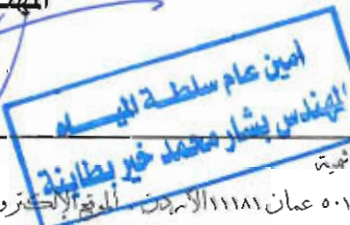 المهند
امين عام سلطة المياه
المهندس بشار محمد خير بطاينة
٥٠ عمان ١١١٨١ الأردن . الموقع الإلكترو